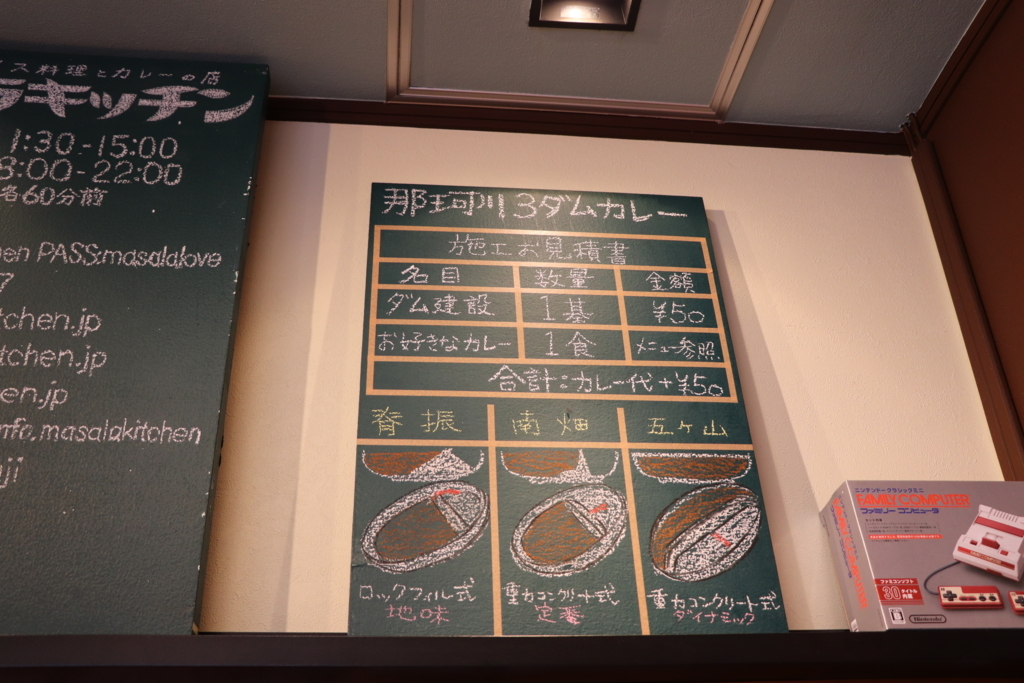 ス料理とカレーの店
ラキッチン
1:30-15:00
8:00-22:00
各60分前
en PASS:masalalove
7
tchen.jp
tchen.jp
en.jp
info.masalakitchen
uji
那珂川3ダムカレー
施工お見積書
名目 数量 金額
ダム建設 1基 ¥50
お好きなカレー 1食 メニュー参照
合計:カレー代+¥50
脊振 南畑 五ケ山
ロックフィル式 重力コンクリート式 重力コンクリート式
地味 定番 ダイナミック
ニンテンドークラシックミニ
FAMILY COMPUTER
ファミリーコンピュータ
FAMILY COMPUTER
ファミコンソフト
30タイトル
内蔵
Nintendo